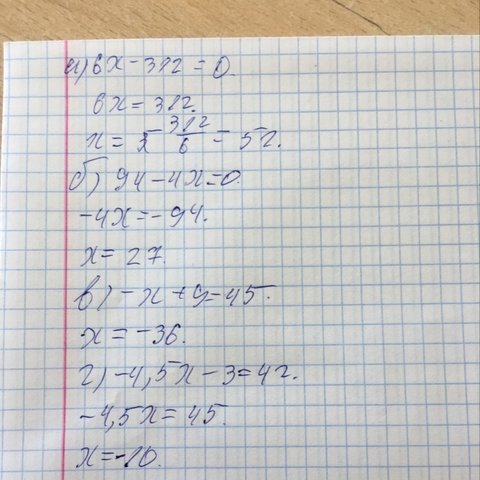 а) 6x - 312 = 0.
6x = 312.
x = 312/6 = 52.
б) 94 - 4x = 0.
-4x = -94.
x = 27.
в) -x + 9 = 45.
x = -36.
г) -4,5x - 3 = 42.
-4,5x = 45.
x = -10.